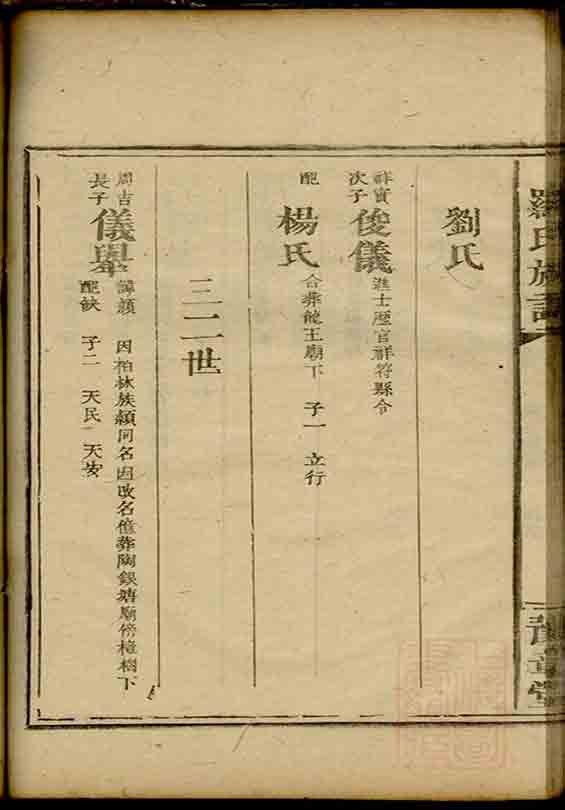 羅氏族譜
豫章堂
劉氏
祥實
次子
俊儀
進士歷官祥符縣令
配
楊氏
合葬龍王廟下 子一 立行
三二世
周吉
長子
儀舉
諱穎 因柏林族穎同名因改名億葬陶銀塘廟傍樟樹下
配缺 子二 天民 天安